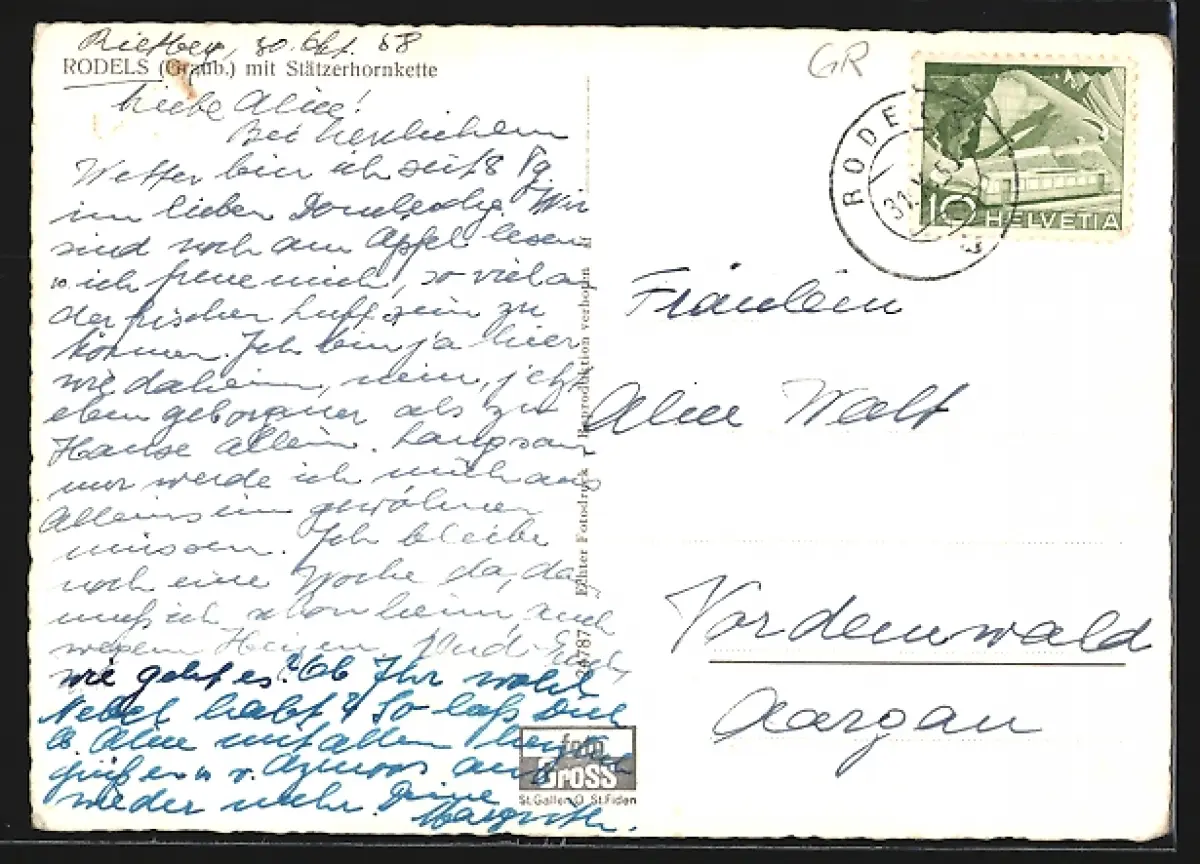 30. Okt. 58
RODELS (Graub.) mit Stätzerhornkette
Liebe Alice!
Bei herrlichem
Wetter bin ich seit 8 Tg.
im lieben Domleschg. Wir
sind noch am Äpfel lesen
u. ich freue mich, so viel a
der frischer Luft sein zu
können. Ich bin ja hier
wie daheim, nein, jetzt
eben geborgener als zu
Hause allein. Langsam
nur werde ich mich ans
Alleinsein gewöhnen
müssen. Ich bleibe
noch eine Woche da, dann
muß ich schon heim auch
wegen Heizen. Und Euch,
wie geht es? Ob Ihr wohl
Nebel habt? So laß Dich
lb Alice mit allen herzlich
grüßen u. v. Azmoos aus
wieder mehr. Deine
Margrith.
24787 Echter Fotodruck Reproduktion verboten
foto
Gross
St. Gallen O. St. Fiden
GR
RODELS
31.
10 HELVETIA
Fräulein
Alice Walt
Vordemwald
Aargau